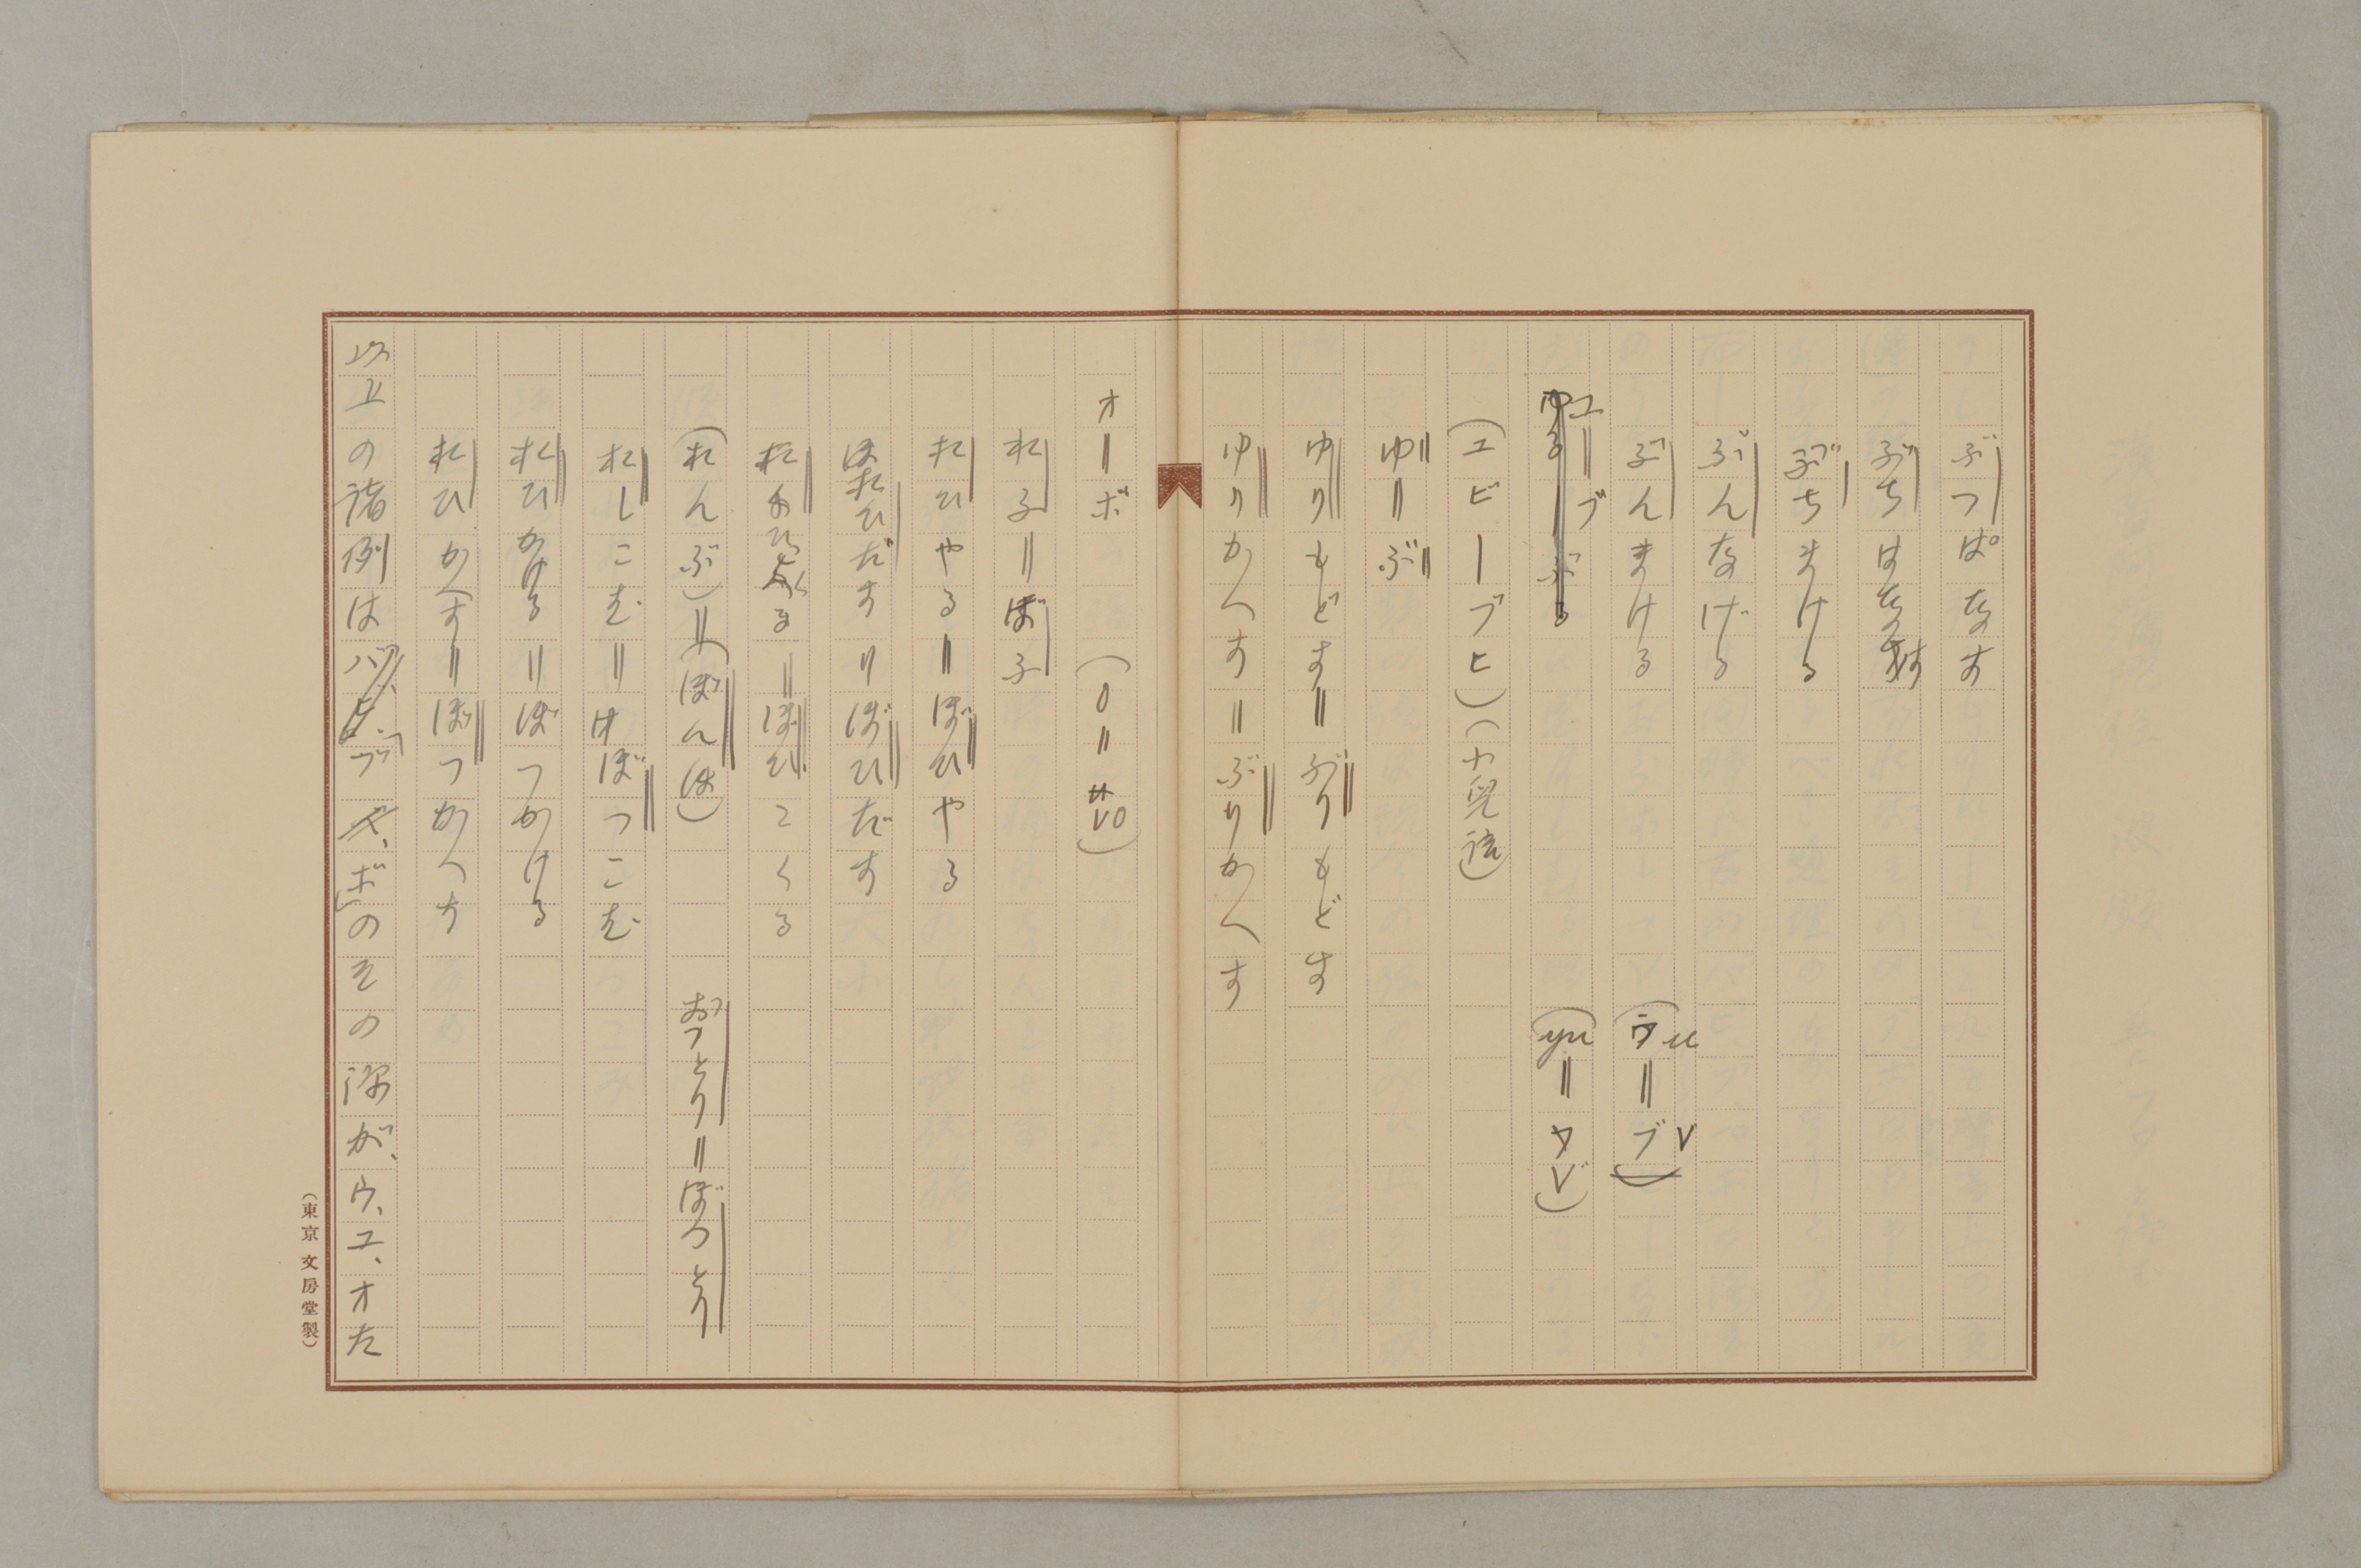 ぶつぱなす
ぶちはなす
ぶちまける
ぶんなげる
ぶんまける (ウu=ブv)
ユ=ブ (yu=ヤv)
(エビーブヒ)(小児語)
ゆ=ぶ
ゆりもどす=ぶりもどす
ゆりかへす=ぶりかへす
オ=ボ (o=vo)
おひやる=ぼひやる
おひだす=ぼひだす
=ぼひこくる
(おんぶ)=(ぼんぼ) おつとり=ぼつとり
おしこむ=ぼつこむ
おひかける=ぼつかける
おひかへす=ぼつかへす
以上の諸例は「ブ、ボ」のその源が、ウ、ユ、オた
(東京 文房堂製)